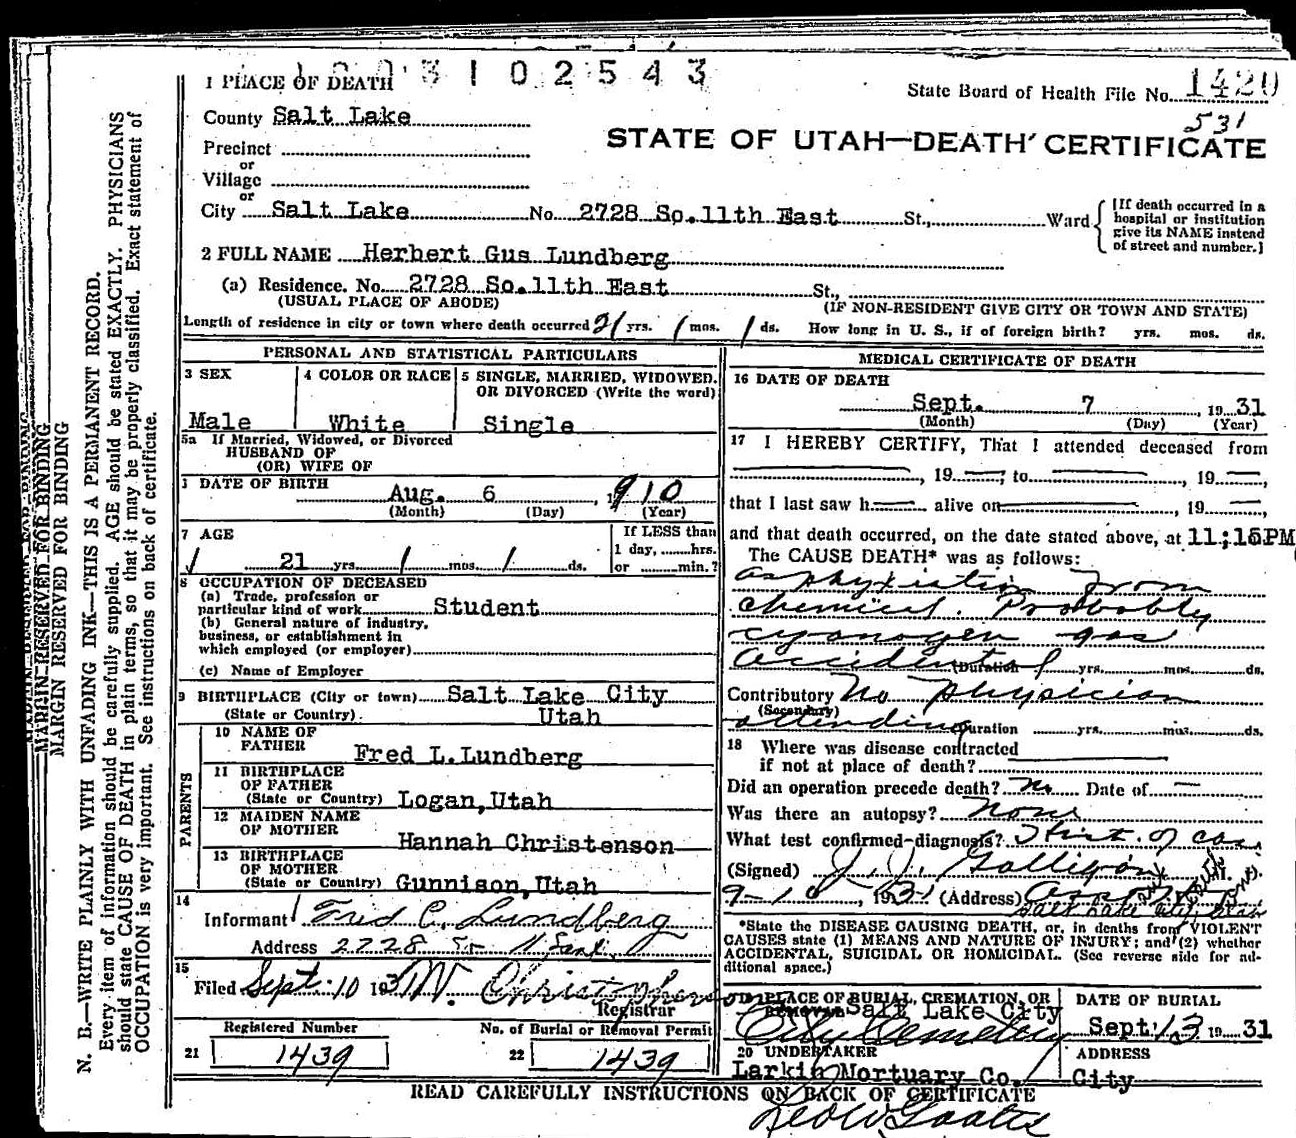 1 0 0 3 1 0 2 5 4 3
1 PLACE OF DEATH
State Board of Health File No. 1420
531
County Salt Lake
STATE OF UTAH—DEATH CERTIFICATE
Precinct
or
Village
or
City Salt Lake No. 2728 So.11th East St., Ward
[If death occurred in a hospital or institution give its NAME instead of street and number.]
2 FULL NAME Herbert Gus Lundberg
(a) Residence. No. 2728 So.11th East St.,
(USUAL PLACE OF ABODE) (IF NON-RESIDENT GIVE CITY OR TOWN AND STATE)
Length of residence in city or town where death occurred 21 yrs. 1 mos. 1 ds. How long in U. S., if of foreign birth? yrs. mos. ds.
PERSONAL AND STATISTICAL PARTICULARS
3 SEX
Male
4 COLOR OR RACE
White
5 SINGLE, MARRIED, WIDOWED, OR DIVORCED (Write the word)
Single
5a If Married, Widowed, or Divorced
HUSBAND OF
(OR) WIFE OF
DATE OF BIRTH
Aug. 6, 1910
(Month) (Day) (Year)
7 AGE
21 yrs. 1 mos. 1 ds.
If LESS than
1 day, hrs.
or min.?
8 OCCUPATION OF DECEASED
(a) Trade, profession or
particular kind of work Student
(b) General nature of industry,
business, or establishment in
which employed (or employer)
(c) Name of Employer
9 BIRTHPLACE (City or town) Salt Lake City
(State or Country) Utah
PARENTS
10 NAME OF
FATHER Fred L.Lundberg
11 BIRTHPLACE
OF FATHER
(State or Country) Logan,Utah
12 MAIDEN NAME
OF MOTHER Hannah Christenson
13 BIRTHPLACE
OF MOTHER
(State or Country) Gunnison,Utah
14
Informant Fred C. Lundberg
Address 2728 So 11 East
15
Filed Sept. 10 1931 W. Christopherson
Registrar
Registered Number
21 1439
No. of Burial or Removal Permit
22 1439
MEDICAL CERTIFICATE OF DEATH
16 DATE OF DEATH
Sept. 7, 1931
(Month) (Day) (Year)
17 I HEREBY CERTIFY, That I attended deceased from
, 19 ; to , 19 ,
that I last saw h alive on , 19 ,
and that death occurred, on the date stated above, at 11;15PM
The CAUSE DEATH* was as follows:
asphyxiation from
chemical. Probably
cyanogen gas
Accidental (Duration) yrs. mos. ds.
Contributory No physician
(Secondary)
attending Duration yrs. mos. ds.
18 Where was disease contracted
if not at place of death?
Did an operation precede death? No Date of —
Was there an autopsy? None
What test confirmed diagnosis? Hist. of case
(Signed) J. J. Galligan M.
9-10, 1931 (Address)
Salt Lake City, Utah
*State the DISEASE CAUSING DEATH, or, in deaths from VIOLENT
CAUSES state (1) MEANS AND NATURE OF INJURY; and (2) whether
ACCIDENTAL, SUICIDAL OR HOMICIDAL. (See reverse side for ad-
ditional space.)
19 PLACE OF BURIAL, CREMATION, OR
REMOVAL Salt Lake City
City Cemetery
DATE OF BURIAL
Sept 13 1931
20 UNDERTAKER
Larkin Mortuary Co.
ADDRESS
City
READ CAREFULLY INSTRUCTIONS ON BACK OF CERTIFICATE
MARGIN RESERVED FOR BINDING
MARGIN RESERVED FOR BINDING
N. B.—WRITE PLAINLY WITH UNFADING INK—THIS IS A PERMANENT RECORD.
Every item of information should be carefully supplied. AGE should be stated EXACTLY. PHYSICIANS
should state CAUSE OF DEATH in plain terms, so that it may be properly classified. Exact statement of
OCCUPATION is very important. See instructions on back of certificate.